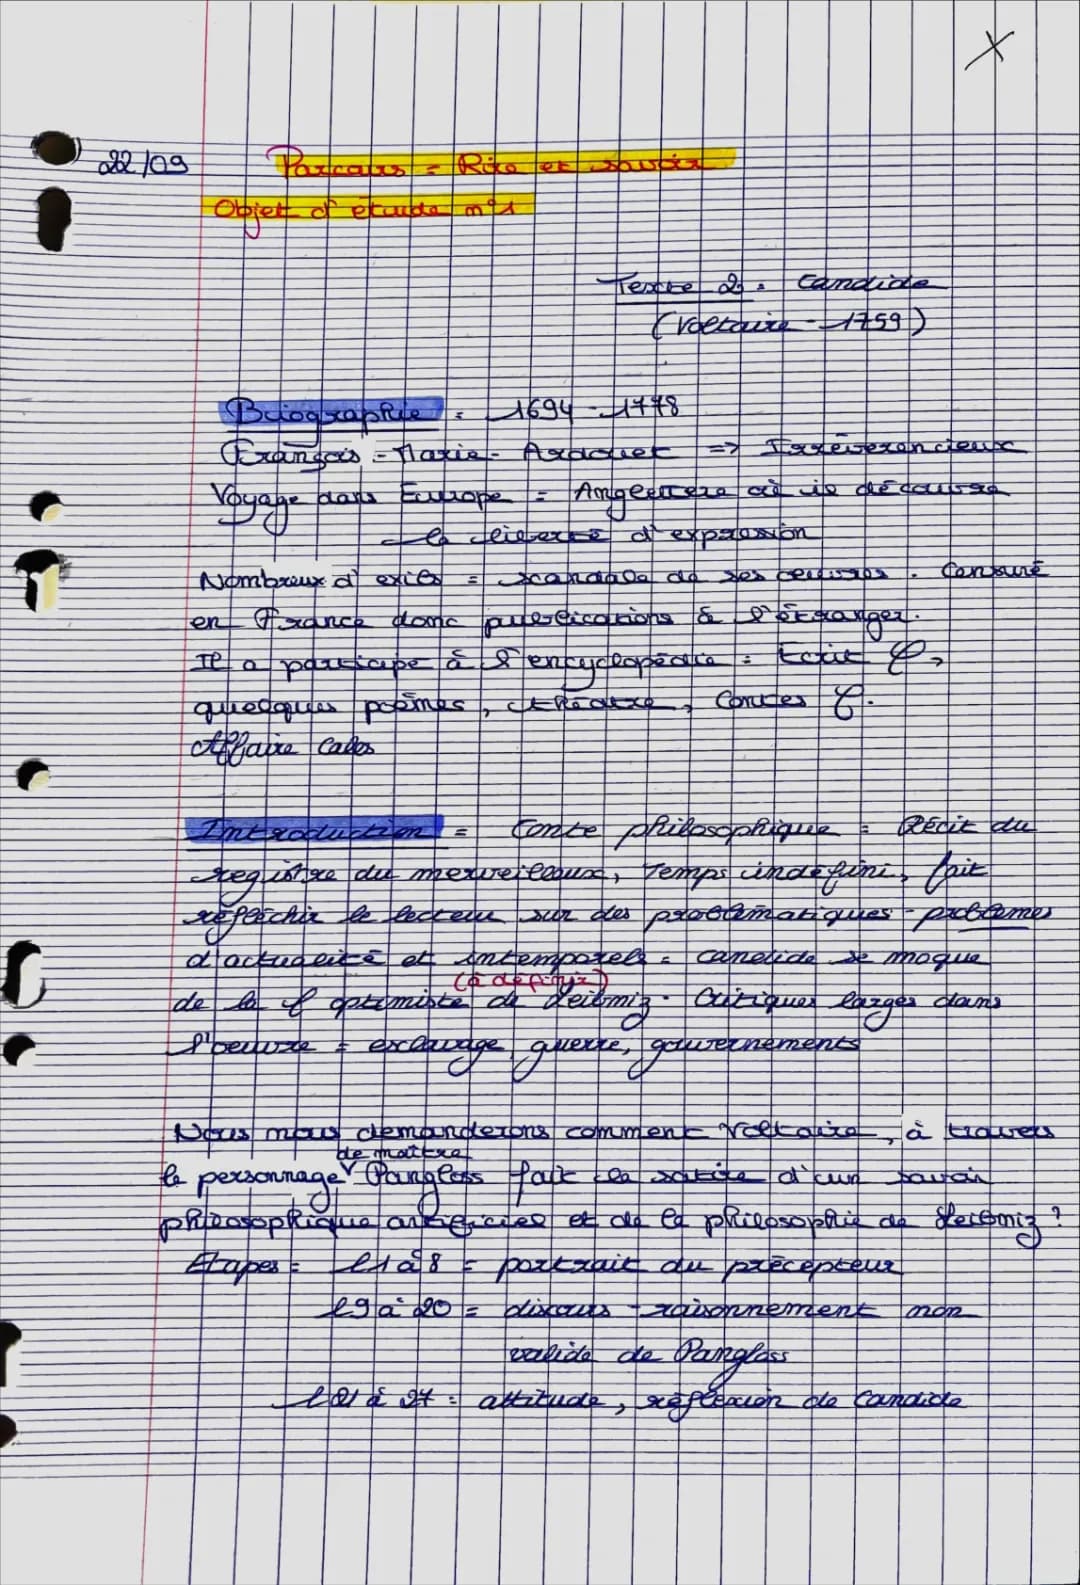 22/09 Parcours = Rire et savoir
Objet d'étude n°1
Texte 2 : Candide
(Voltaire - 1759)
Biographie : 1694 - 1778
François - Marie - Arouet => Irrévérencieux
Voyage dans Europe = Angleterre où il découvre
la liberté d'expression
Nombreux d'exils = scandale de ses oeuvres. Censuré
en France donc publications à l'étranger.
Il a participé à l'encyclopédie : Ecrit φ,
quelques poèmes, théâtre, Contes φ.
Affaire Calas
Introduction = Conte philosophique = Récit du
registre du merveilleux, Temps indéfini, fait
réfléchir le lecteur sur des problématiques - problèmes
d'actualité et intemporels = Candide se moque
(à définir)
de la φ optimiste de Leibniz. Critiques larges dans
l'oeuvre = esclavage, guerre, gouvernements
Nous nous demanderons comment Voltaire, à travers
de maître
le personnage Pangloss fait la satire d'un savoir
philosophique artificiel et de la philosophie de Leibniz ?
Etapes = l1 à 8 = portrait du précepteur
l9 à 20 = discours - raisonnement non
valide de Pangloss
l21 à 27 = attitude, réflexion de Candide